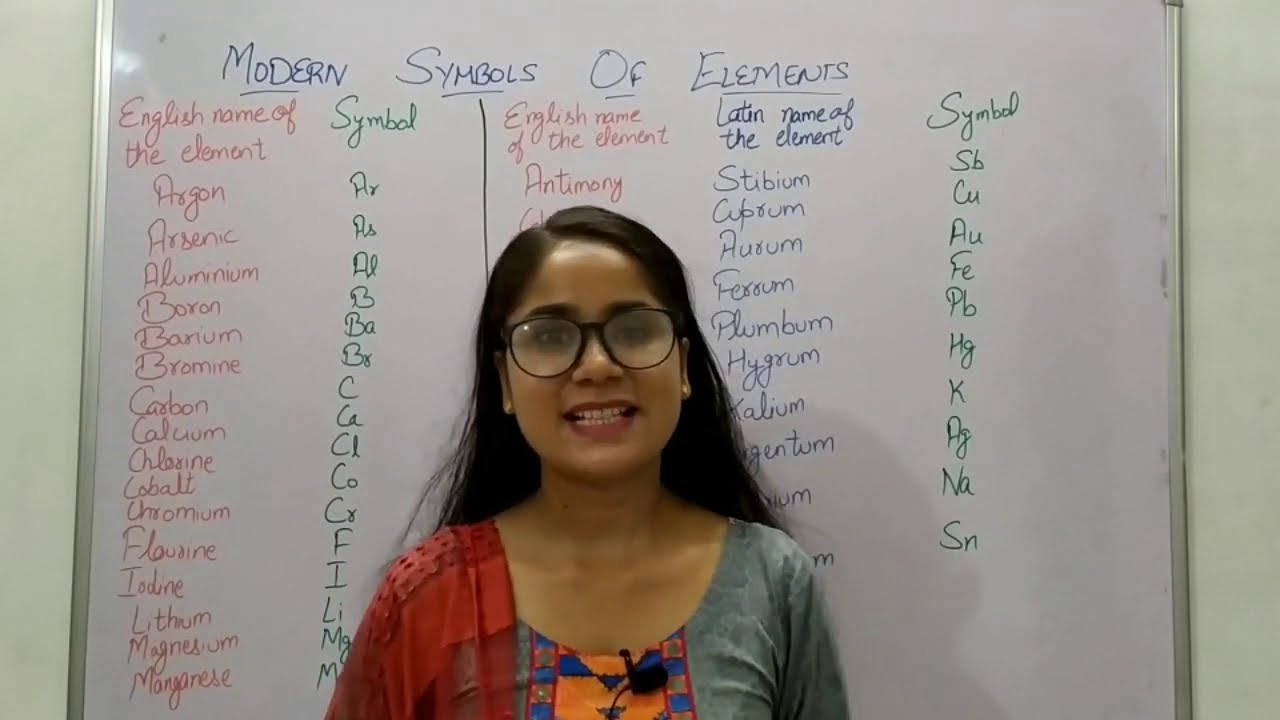 MODERN SYMBOLS OF ELEMENTS
English name of the element
Symbol
Argon Ar
Arsenic As
Aluminium Al
Boron B
Barium Ba
Bromine Br
Carbon C
Calcium Ca
Chlorine Cl
Cobalt Co
Chromium Cr
Flourine F
Iodine I
Lithium Li
Magnesium Mg
Manganese M
English name of the element
Latin name of the element
Symbol
Antimony Stibium Sb
Cuprum Cu
Aurum Au
Ferrum Fe
Plumbum Pb
Hygrum Hg
Kalium K
rgentum Ag
ium Na
m Sn